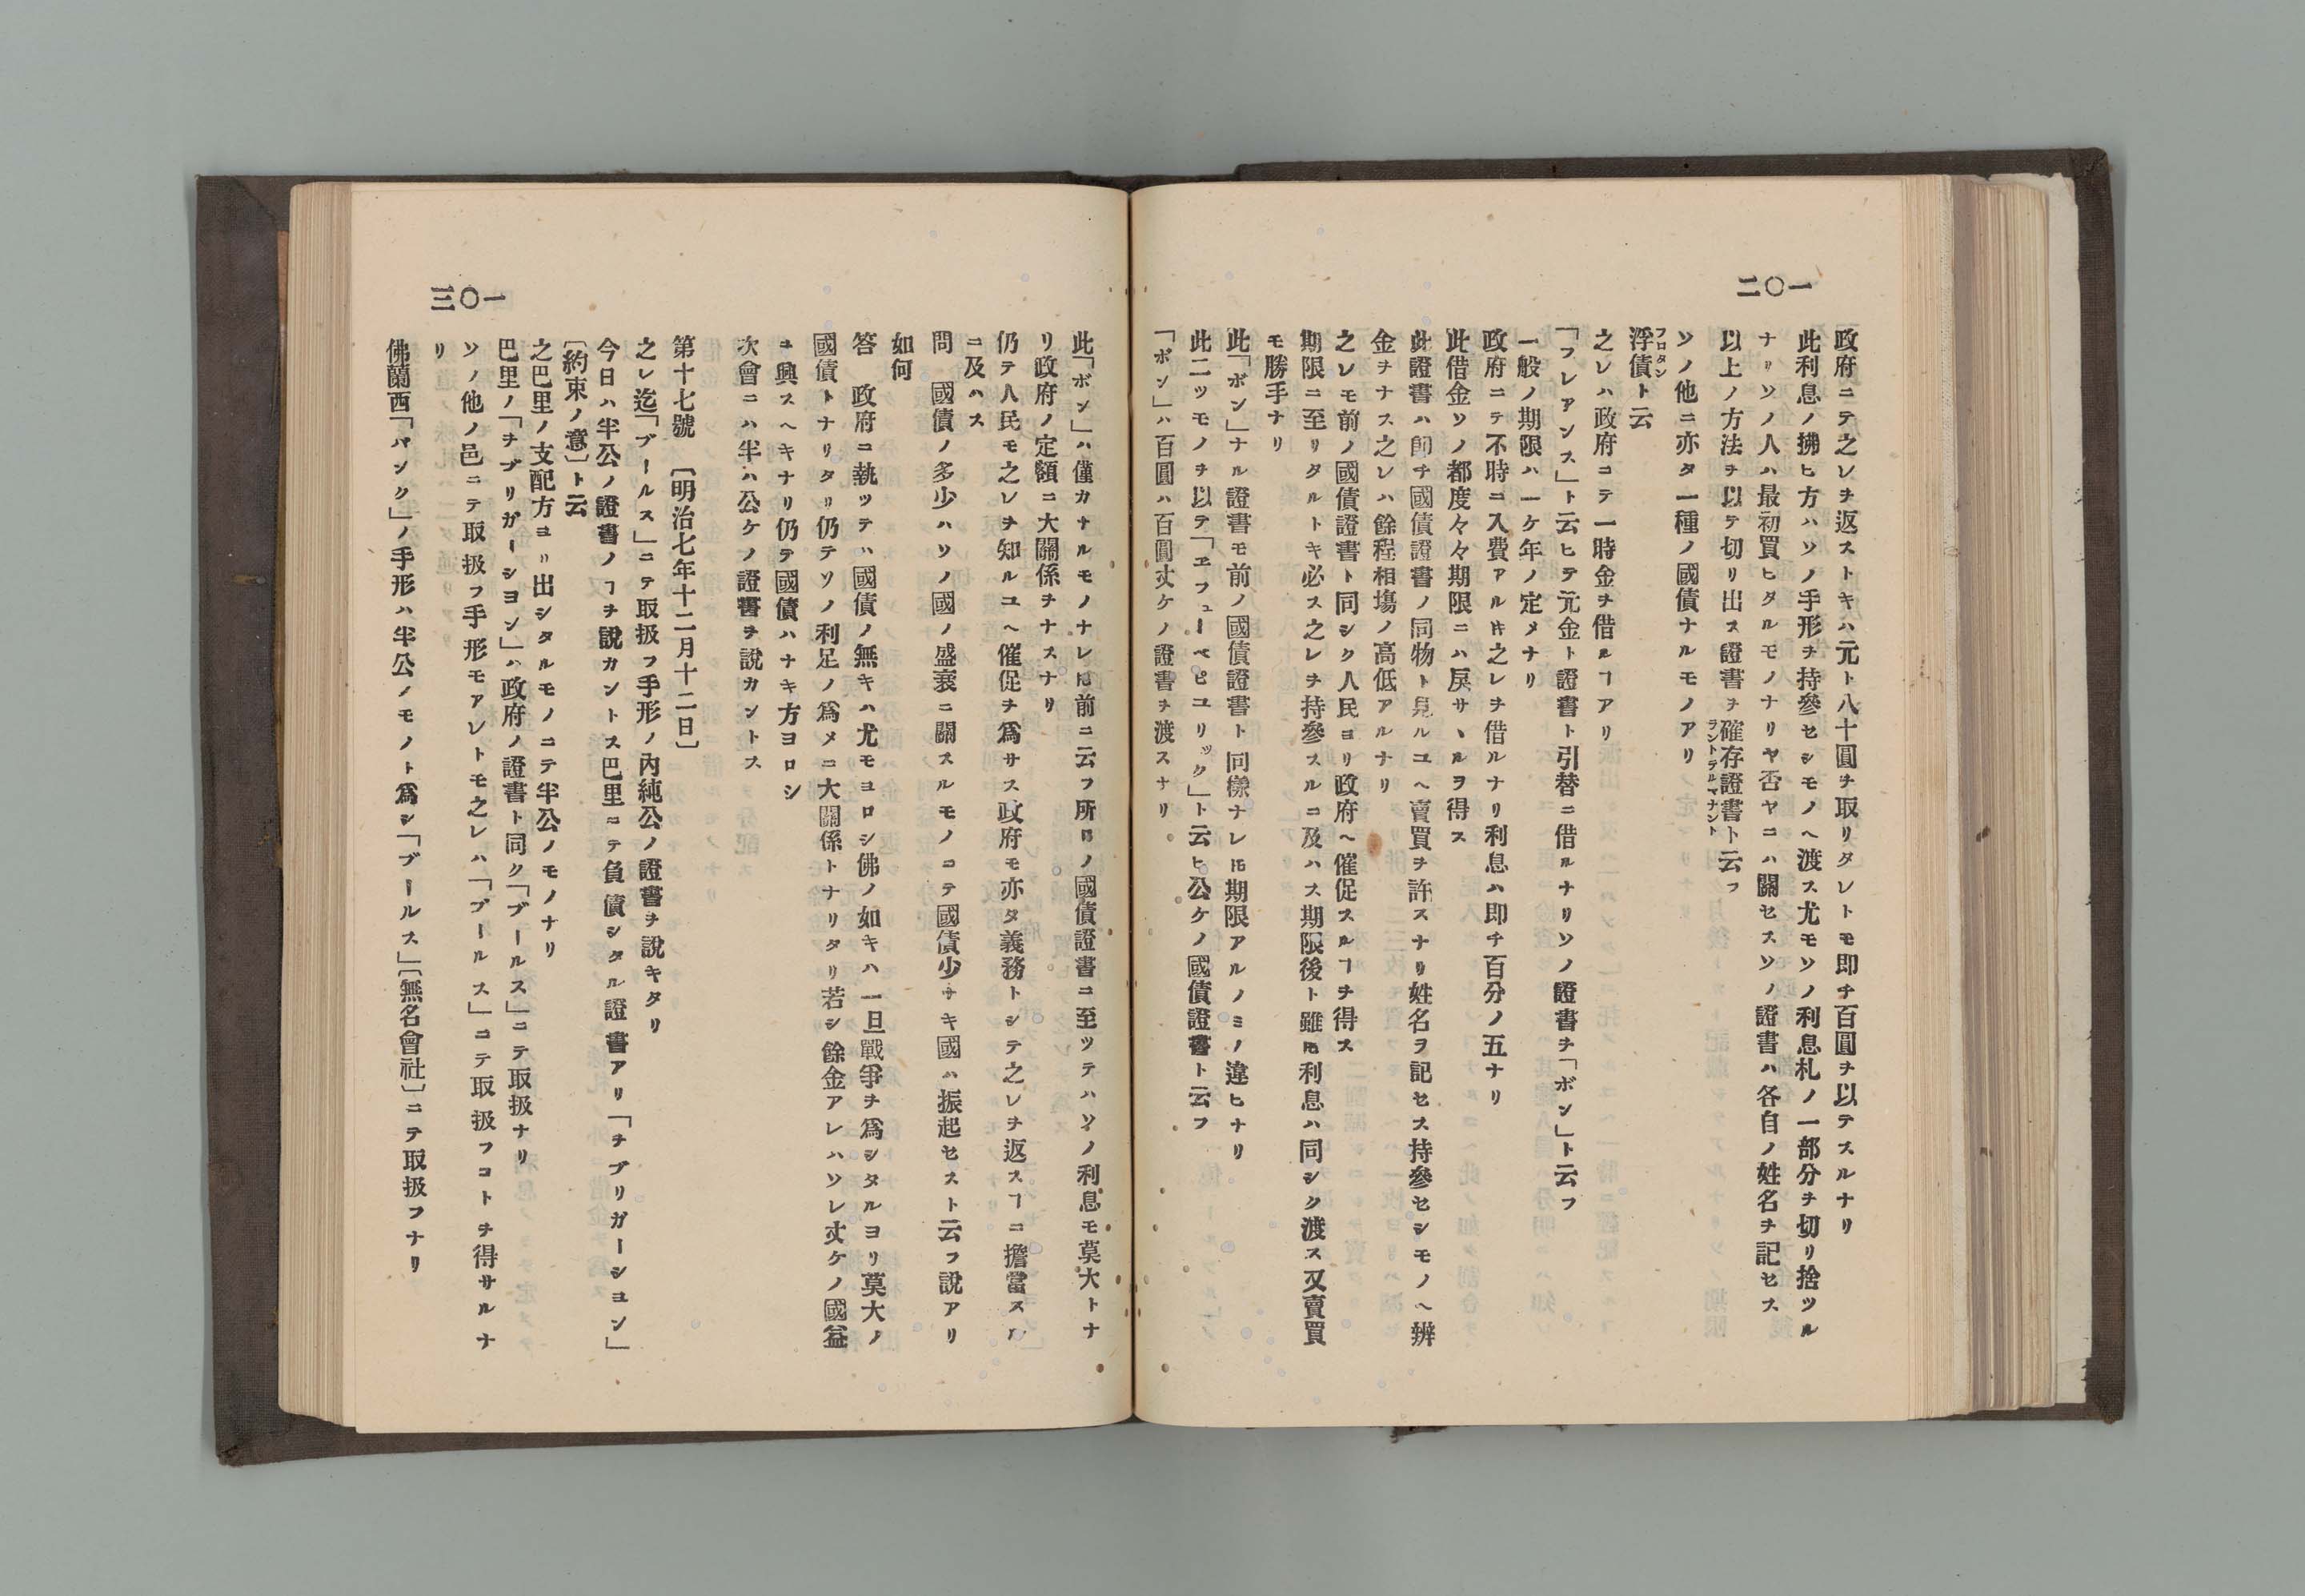 一〇二
政府ニテ之レヲ返ストキハ元ト八十圓ヲ取リタレトモ即チ百圓ヲ以テスルナリ
此利息ノ拂ヒ方ハソノ手形ヲ持參セシモノヘ渡ス尤モソノ利息札ノ一部分ヲ切リ捨ツル
ナリソノ人ハ最初買ヒタルモノナリヤ否ヤニハ關セスソノ證書ハ各自ノ姓名ヲ記セス
以上ノ方法ヲ以テ切リ出ス證書ヲ確存證書ト云フ
ラントデルマナント
ソノ他ニ亦タ一種ノ國債ナルモノアリ
浮債ト云
フロタン
之レハ政府ニテ一時金ヲ借ルヿアリ
「フレアンス」ト云ヒテ元金ト證書ト引替ニ借ルナリソノ證書ヲ「ボン」ト云フ
一般ノ期限ハ一ケ年ノ定メナリ
政府ニテ不時ニ入費アルキ之レヲ借ルナリ利息ハ即チ百分ノ五ナリ
此借金ソノ都度々々期限ニハ戻サヽルヲ得ス
此證書ハ即チ國債證書ノ同物ト見ルユヘ賣買ヲ許スナリ姓名ヲ記セス持參セシモノヘ辨
金ヲナス之レハ餘程相塲ノ高低アルナリ
之レモ前ノ國債證書ト同シク人民ヨリ政府ヘ催促スルヿヲ得ス
期限ニ至リタルトキ必ス之レヲ持參スルニ及ハス期限後ト雖𪜈利息ハ同シク渡ス又賣買
モ勝手ナリ
此「ボン」ナル證書モ前ノ國債證書ト同樣ナレ𪜈期限アルノミノ違ヒナリ
此二ツモノヲ以テ「エフューペピユリック」ト云ヒ公ケノ國債證書ト云フ
「ボン」ハ百圓ハ百圓丈ケノ證書ヲ渡スナリ
一〇三
此「ボン」ハ僅カナルモノナレ𪜈前ニ云フ所ロノ國債證書ニ至ツテハソノ利息モ莫大トナ
リ政府ノ定額ニ大關係ヲナスナリ
仍テ人民モ之レヲ知ルユヘ催促ヲ爲サス政府モ亦タ義務トシテ之レヲ返スヿニ擔當スル
ニ及ハス
問　國債ノ多少ハソノ國ノ盛衰ニ關スルモノニテ國債少ナキ國ハ振起セスト云フ說アリ
如何
答　政府ニ執ツテハ國債ノ無キハ尤モヨロシ佛ノ如キハ一旦戰爭ヲ爲シタルヨリ莫大ノ
國債トナリタリ仍テソノ利足ノ爲メニ大關係トナリタリ若シ餘金アレハソレ丈ケノ國益
ニ興スヘキナリ仍テ國債ハナキ方ヨロシ
次會ニハ半ハ公ケノ證書ヲ說カントス
第十七號　〔明治七年十二月十二日〕
之レ迄「ブールス」ニテ取扱フ手形ノ內純公ノ證書ヲ說キタリ
今日ハ半公ノ證書ノヿヲ說カントス巴里ニテ負債シタル證書アリ「ヲブリガーシヨン」
〔約束ノ意〕ト云
之巴里ノ支配方ヨリ出シタルモノニテ半公ノモノナリ
巴里ノ「ヲブリガーシヨン」ハ政府ノ證書ト同ク「ブールス」ニテ取扱ナリ
ソノ他ノ邑ニテ取扱フ手形モアレトモ之レハ「ブールス」ニテ取扱フコトヲ得サルナ
リ
佛蘭西「バンク」ノ手形ハ半公ノモノト爲シ「ブールス」〔無名會社〕ニテ取扱フナリ